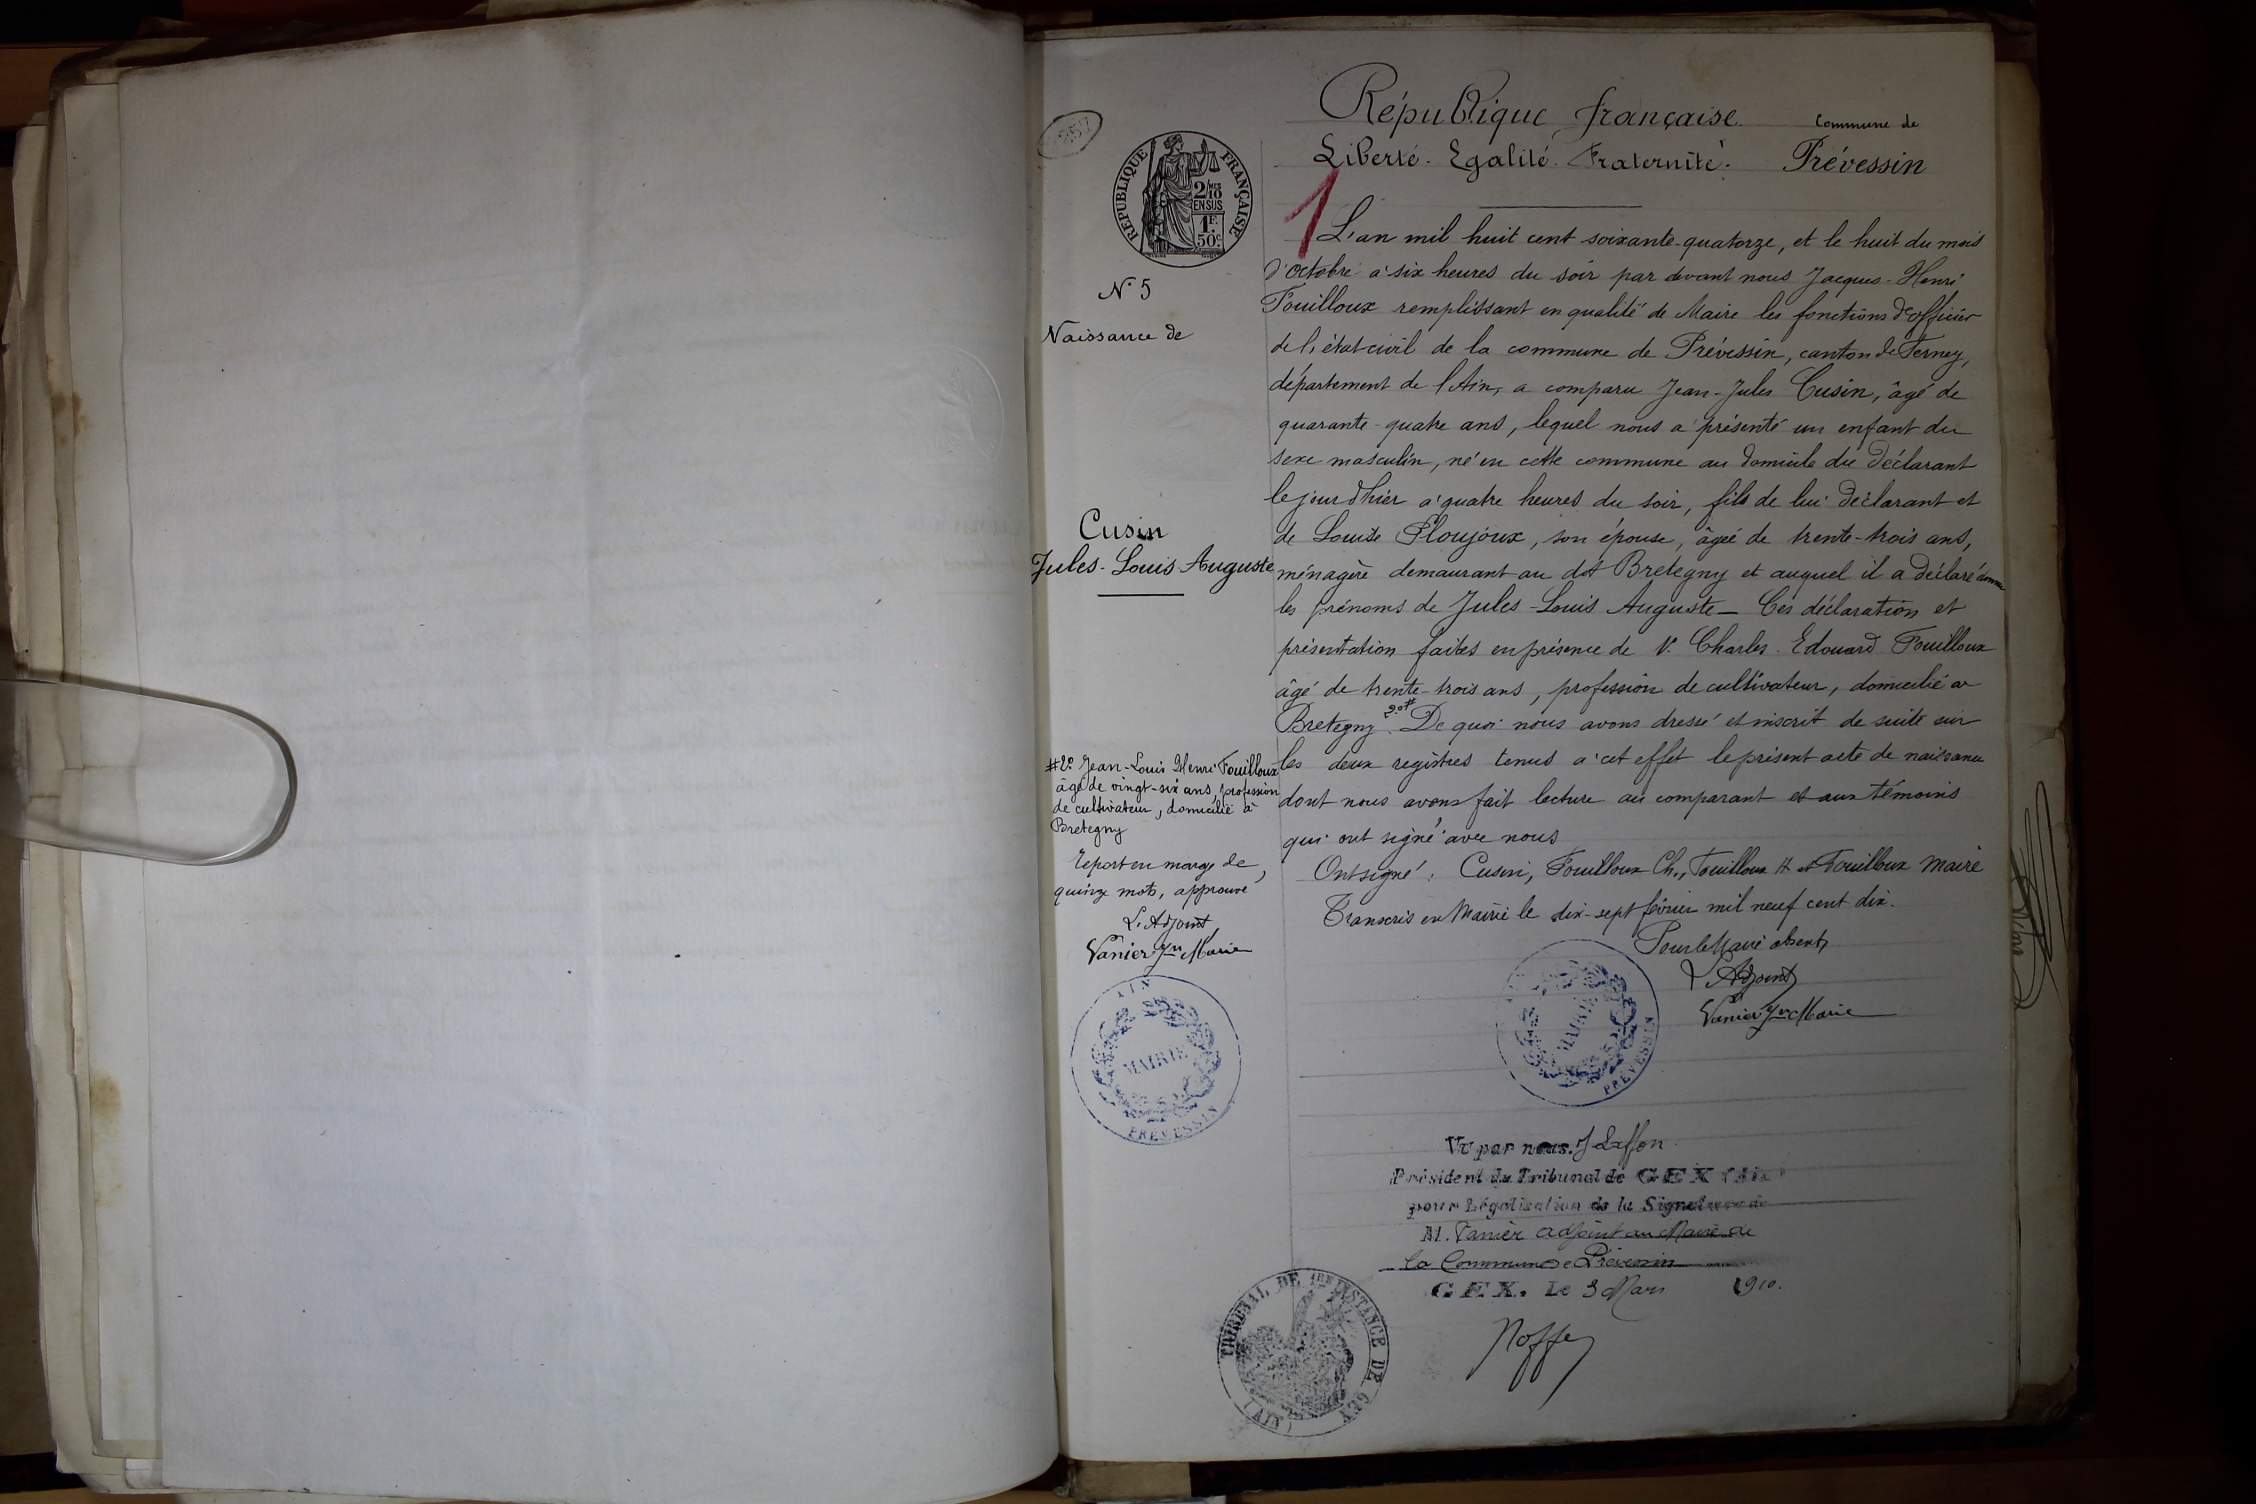 République française
Commune de
Liberté. Egalité. Fraternité.
Prévessin
RÉPUBLIQUE FRANÇAISE
2/10 MES
EN SUS
1F.
50c
1
N° 5
Naissance de
Cusin
Jules-Louis-Auguste
L'an mil huit cent soixante-quatorze, et le huit du mois
d'octobre à six heures du soir par devant nous Jacques-Henri
Fouilloux remplissant en qualité de Maire les fonctions d'officier
de l'état civil de la commune de Prévessin, canton de Ferney,
département de l'Ain, a comparu Jean-Jules Cusin, âgé de
quarante-quatre ans, lequel nous a présenté un enfant du
sexe masculin, né en cette commune au domicile du déclarant
le jour d'hier à quatre heures du soir, fils de lui déclarant et
de Louise Ploujoux, son épouse, âgée de trente-trois ans,
ménagère demaurant au dit Bretegny et auquel il a déclaré donner
les prénoms de Jules-Louis Auguste_ Ces déclaration et
présentation faites en présence de 1° Charles-Edouard Fouilloux
âgé de trente-trois ans, profession de cultivateur, domicilié à
Bretegny. 2°# De quoi nous avons dressé et inscrit de suite sur
les deux registres tenus à cet effet le présent acte de naissance
dont nous avons fait lecture au comparant et aux témoins
qui ont signé avec nous
Ont signé: Cusin, Fouilloux Ch., Fouilloux H et Fouilloux Maire
Transcris en Mairie le dix-sept février mil neuf cent dix.
Pour le Maire absent,
L'Adjoint
Vanier Jn Marie
#2° Jean-Louis Henri Fouilloux
âgé de vingt-six ans, profession
de cultivateur, domicilié à
Bretegny
Report en marge de
quinze mots, approuvé
L'Adjoint,
Vanier Jn Marie
AIN
MAIRIE
PREVESSIN
MAIRIE
PREVESSIN
Vu par nous.
Président du Tribunal de GEX (Ain)
pour Légalisation de la Signature de
M. Vanier adjoint au Maire de
la Commune de Prévessin
GEX. Le 3 Mars 1910.
TRIBUNAL DE 1ERE INSTANCE DE GEX
(AIN)